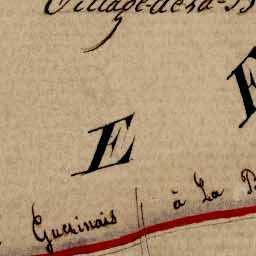 Village de la B
E
Guerinais
à La B